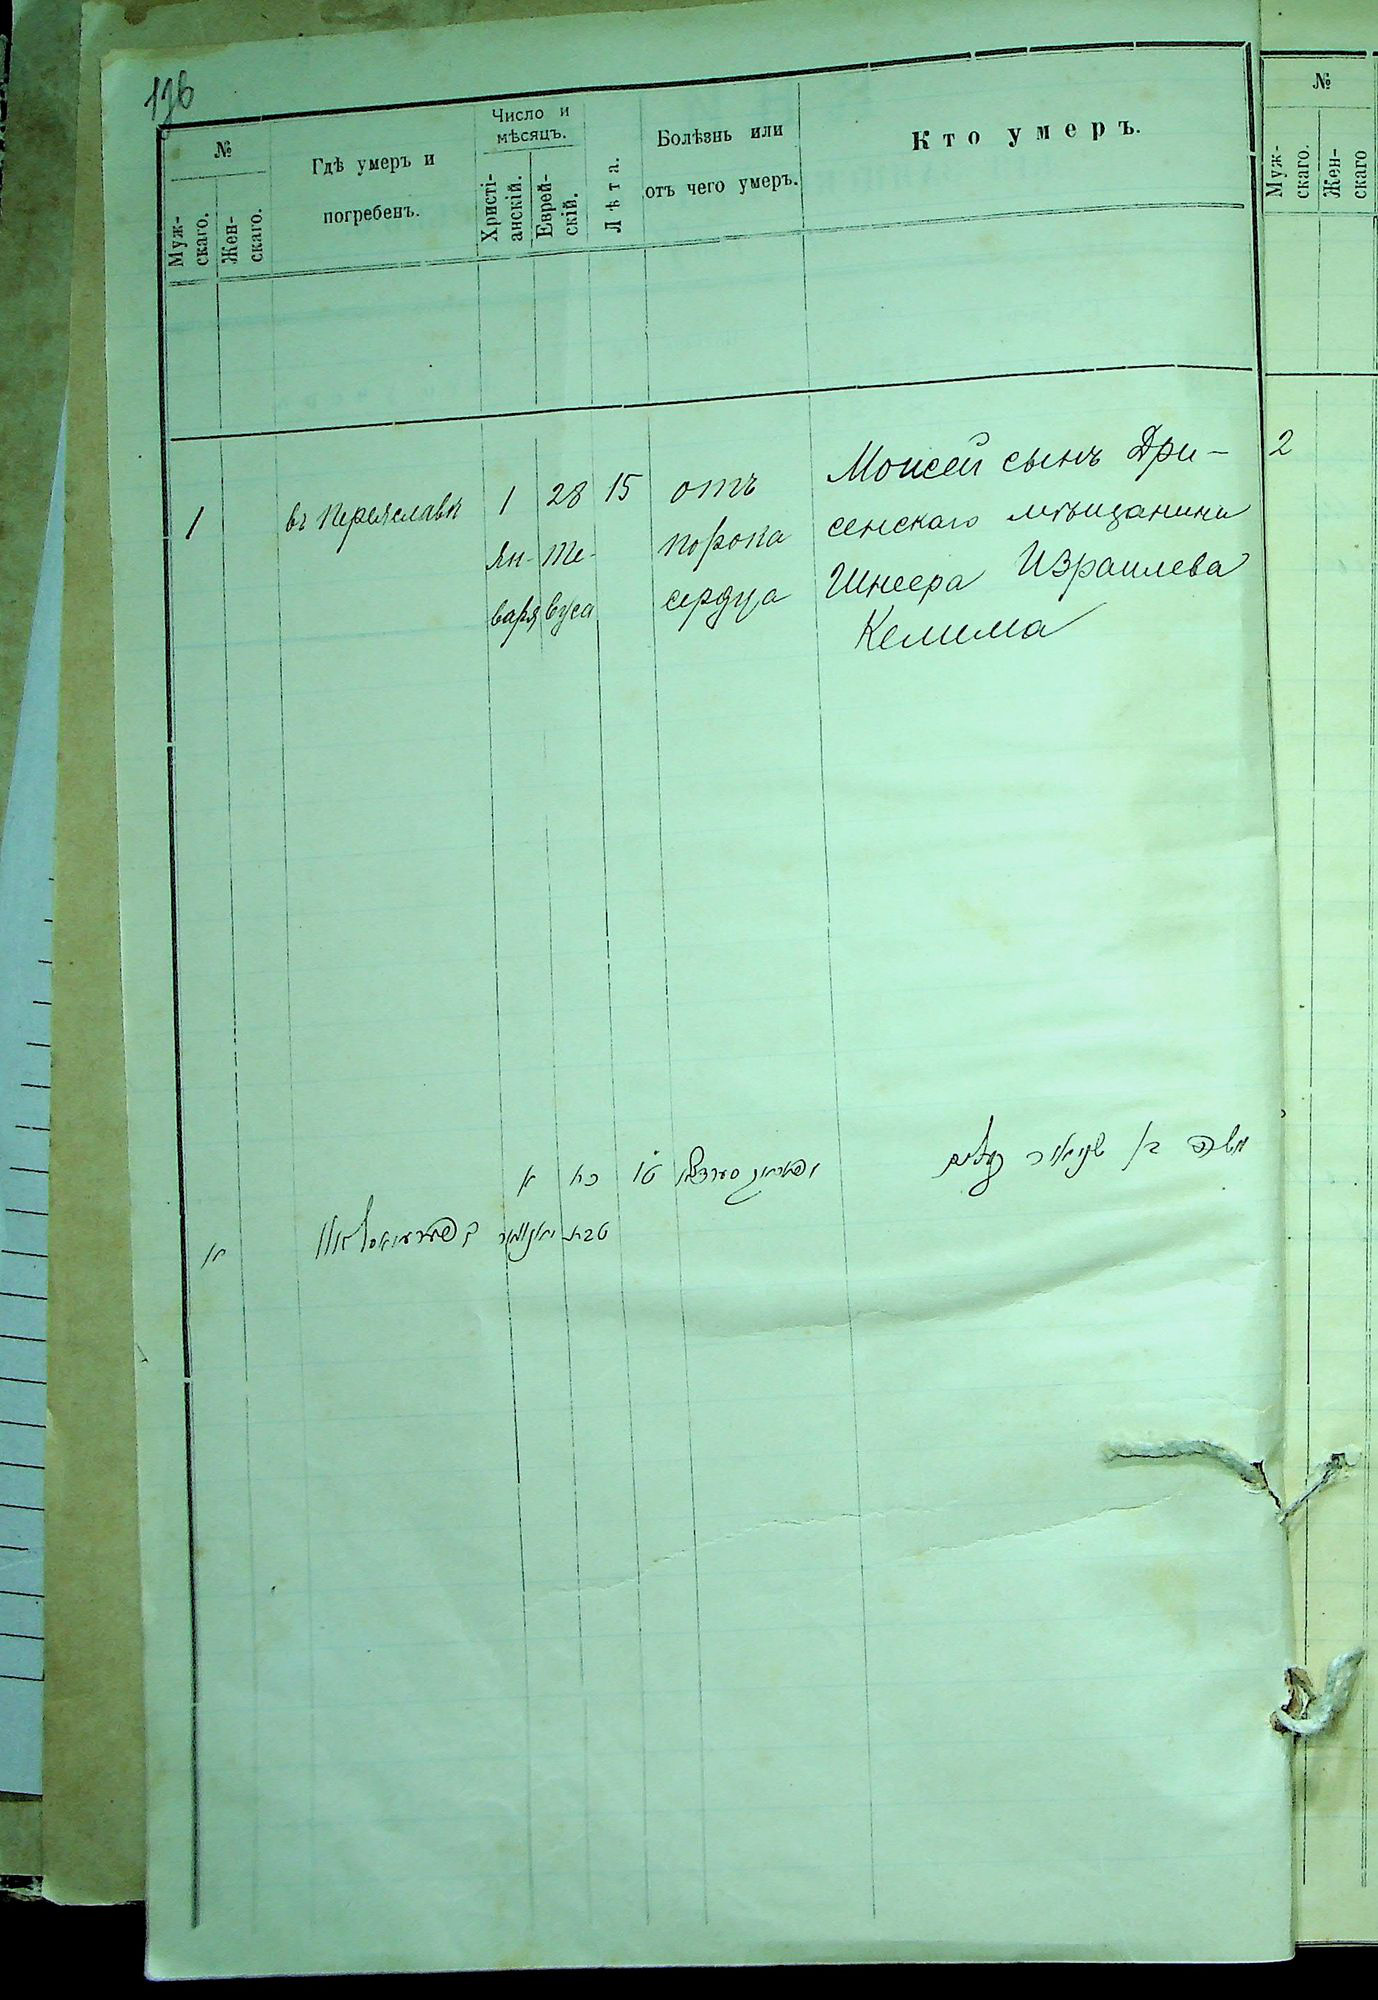 №
Муж-
скаго.
Жен-
скаго.
Гдѣ умеръ и
погребенъ.
Число и
мѣсяцъ.
Христі-
анскій.
Еврей-
скій.
Лѣта.
Болѣзнь или
отъ чего умеръ.
Кто умеръ.
1
въ Переяславѣ
1
Ян-
варя
28
Те-
вуса
15
отъ
порока
сердца
Моисей сынъ Дри-
сенскаго мѣщанина
Шнеера Израилева
Келима
א
טבת
טו
משה בן שניאור
№
Муж-
скаго.
Жен-
скаго
2